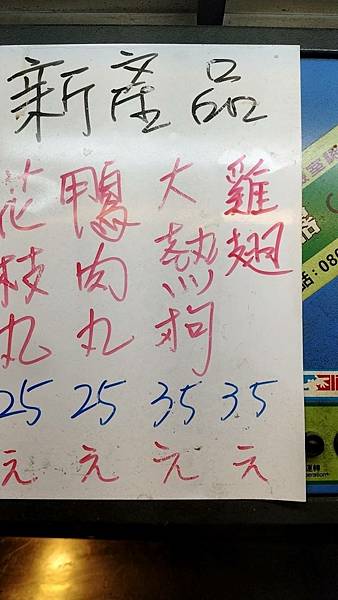 新產品
雞翅
35元
大熱狗
35元
鴨肉丸
25元
花枝丸
25元